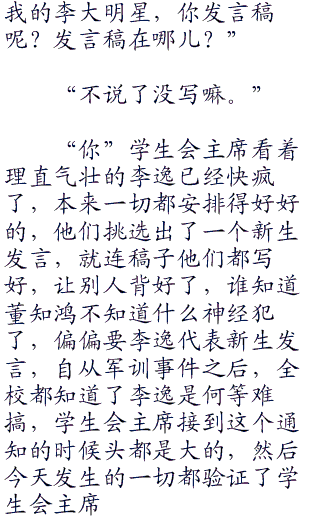 我的李大明星，你发言稿
呢？发言稿在哪儿？”
“不说了没写嘛。”
“你”学生会主席看着
理直气壮的李逸已经快疯
了，本来一切都安排得好好
的，他们挑选出了一个新生
发言，就连稿子他们都写
好，让别人背好了，谁知道
董知鸿不知道什么神经犯
了，偏偏要李逸代表新生发
言，自从军训事件之后，全
校都知道了李逸是何等难
搞，学生会主席接到这个通
知的时候头都是大的，然后
今天发生的一切都验证了学
生会主席